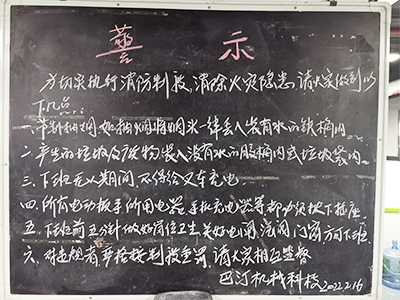 警 示
为切实执行消防制度,消除火灾隐患,请大家做到以
下几点:
一.车间抽烟,如抽烟将烟头一律丢入装有水的铁桶内。
二.产生的垃圾及废物装入没有水的胶桶内或垃圾袋内。
三.下班无人期间,不得给叉车充电
四.所有电动扳手所用电器,手机充电器等都必须拔下插座。
五.下班前五分钟做好岗位卫生关好电闸,汽阀,门窗方可下班.
六.对违规者严格按制度重罚,请大家相互监督
巴汀机械科技2022.2.16